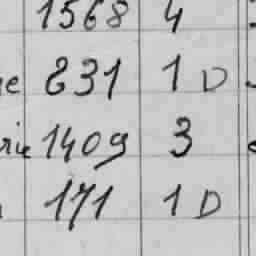 1568 4
831 1 D
1409 3
171 1 D